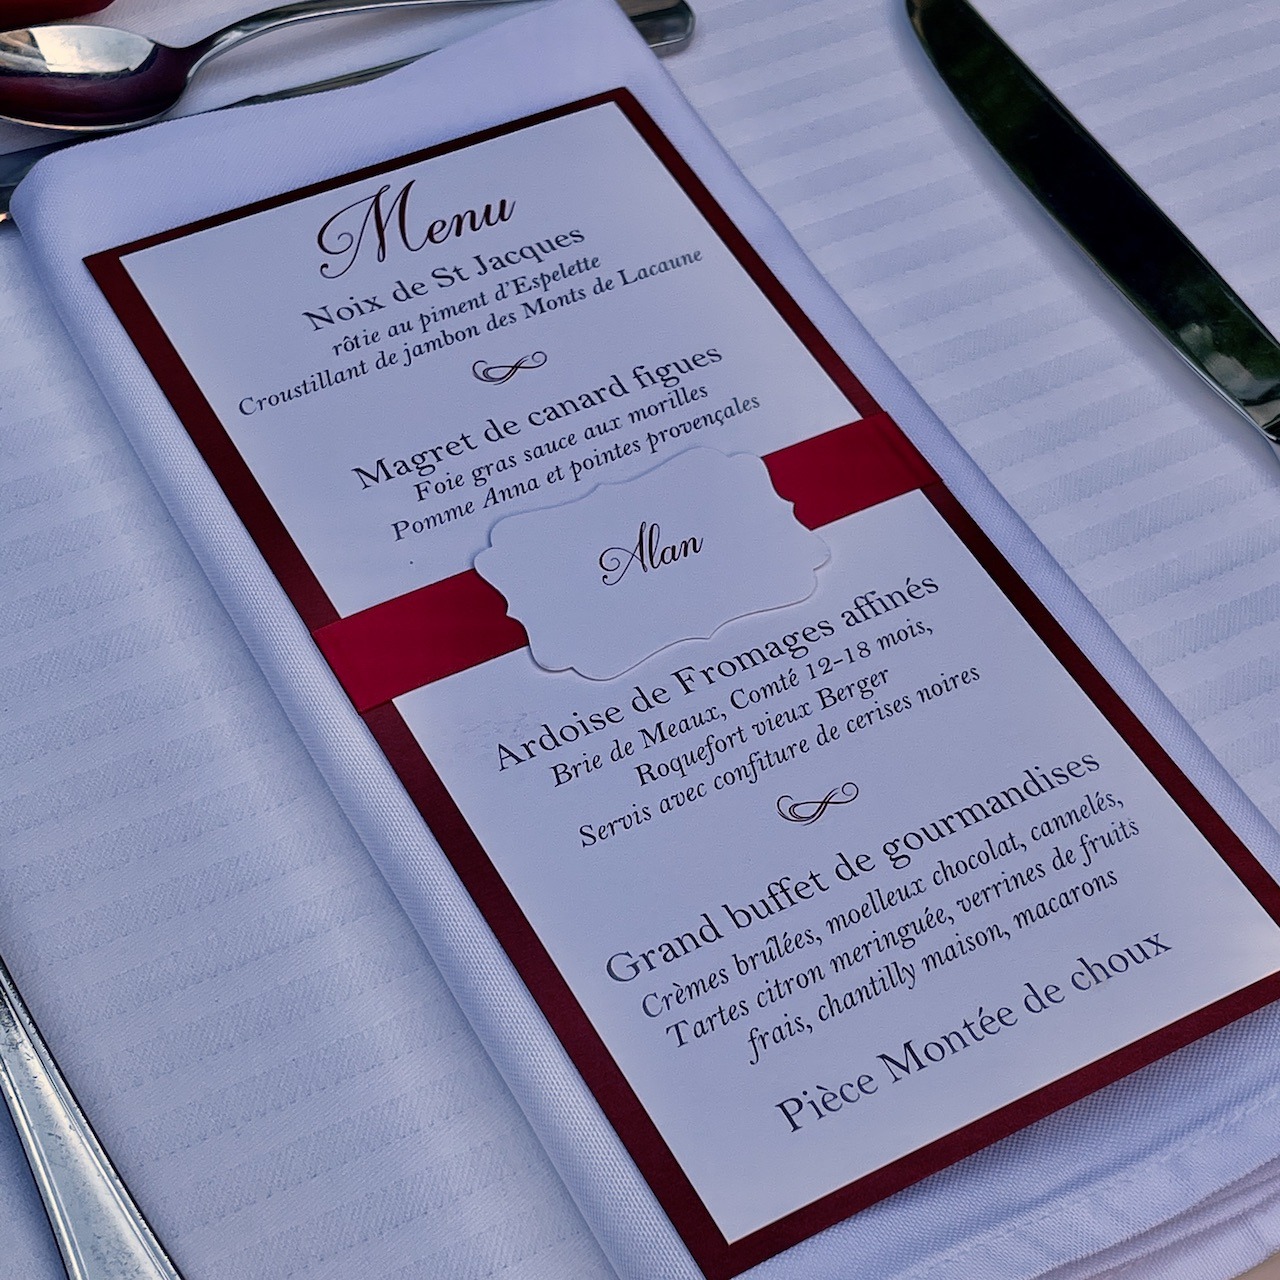 Menu
Noix de St Jacques
rôtie au piment d'Espelette
Croustillant de jambon des Monts de Lacaune
Magret de canard figues
Foie gras sauce aux morilles
Pomme Anna et pointes provençales
Alan
Ardoise de Fromages affinés
Brie de Meaux, Comté 12-18 mois,
Roquefort vieux Berger
Servis avec confiture de cerises noires
Grand buffet de gourmandises
Crèmes brûlées, moelleux chocolat, cannelés,
Tartes citron meringuée, verrines de fruits
frais, chantilly maison, macarons
Pièce Montée de choux